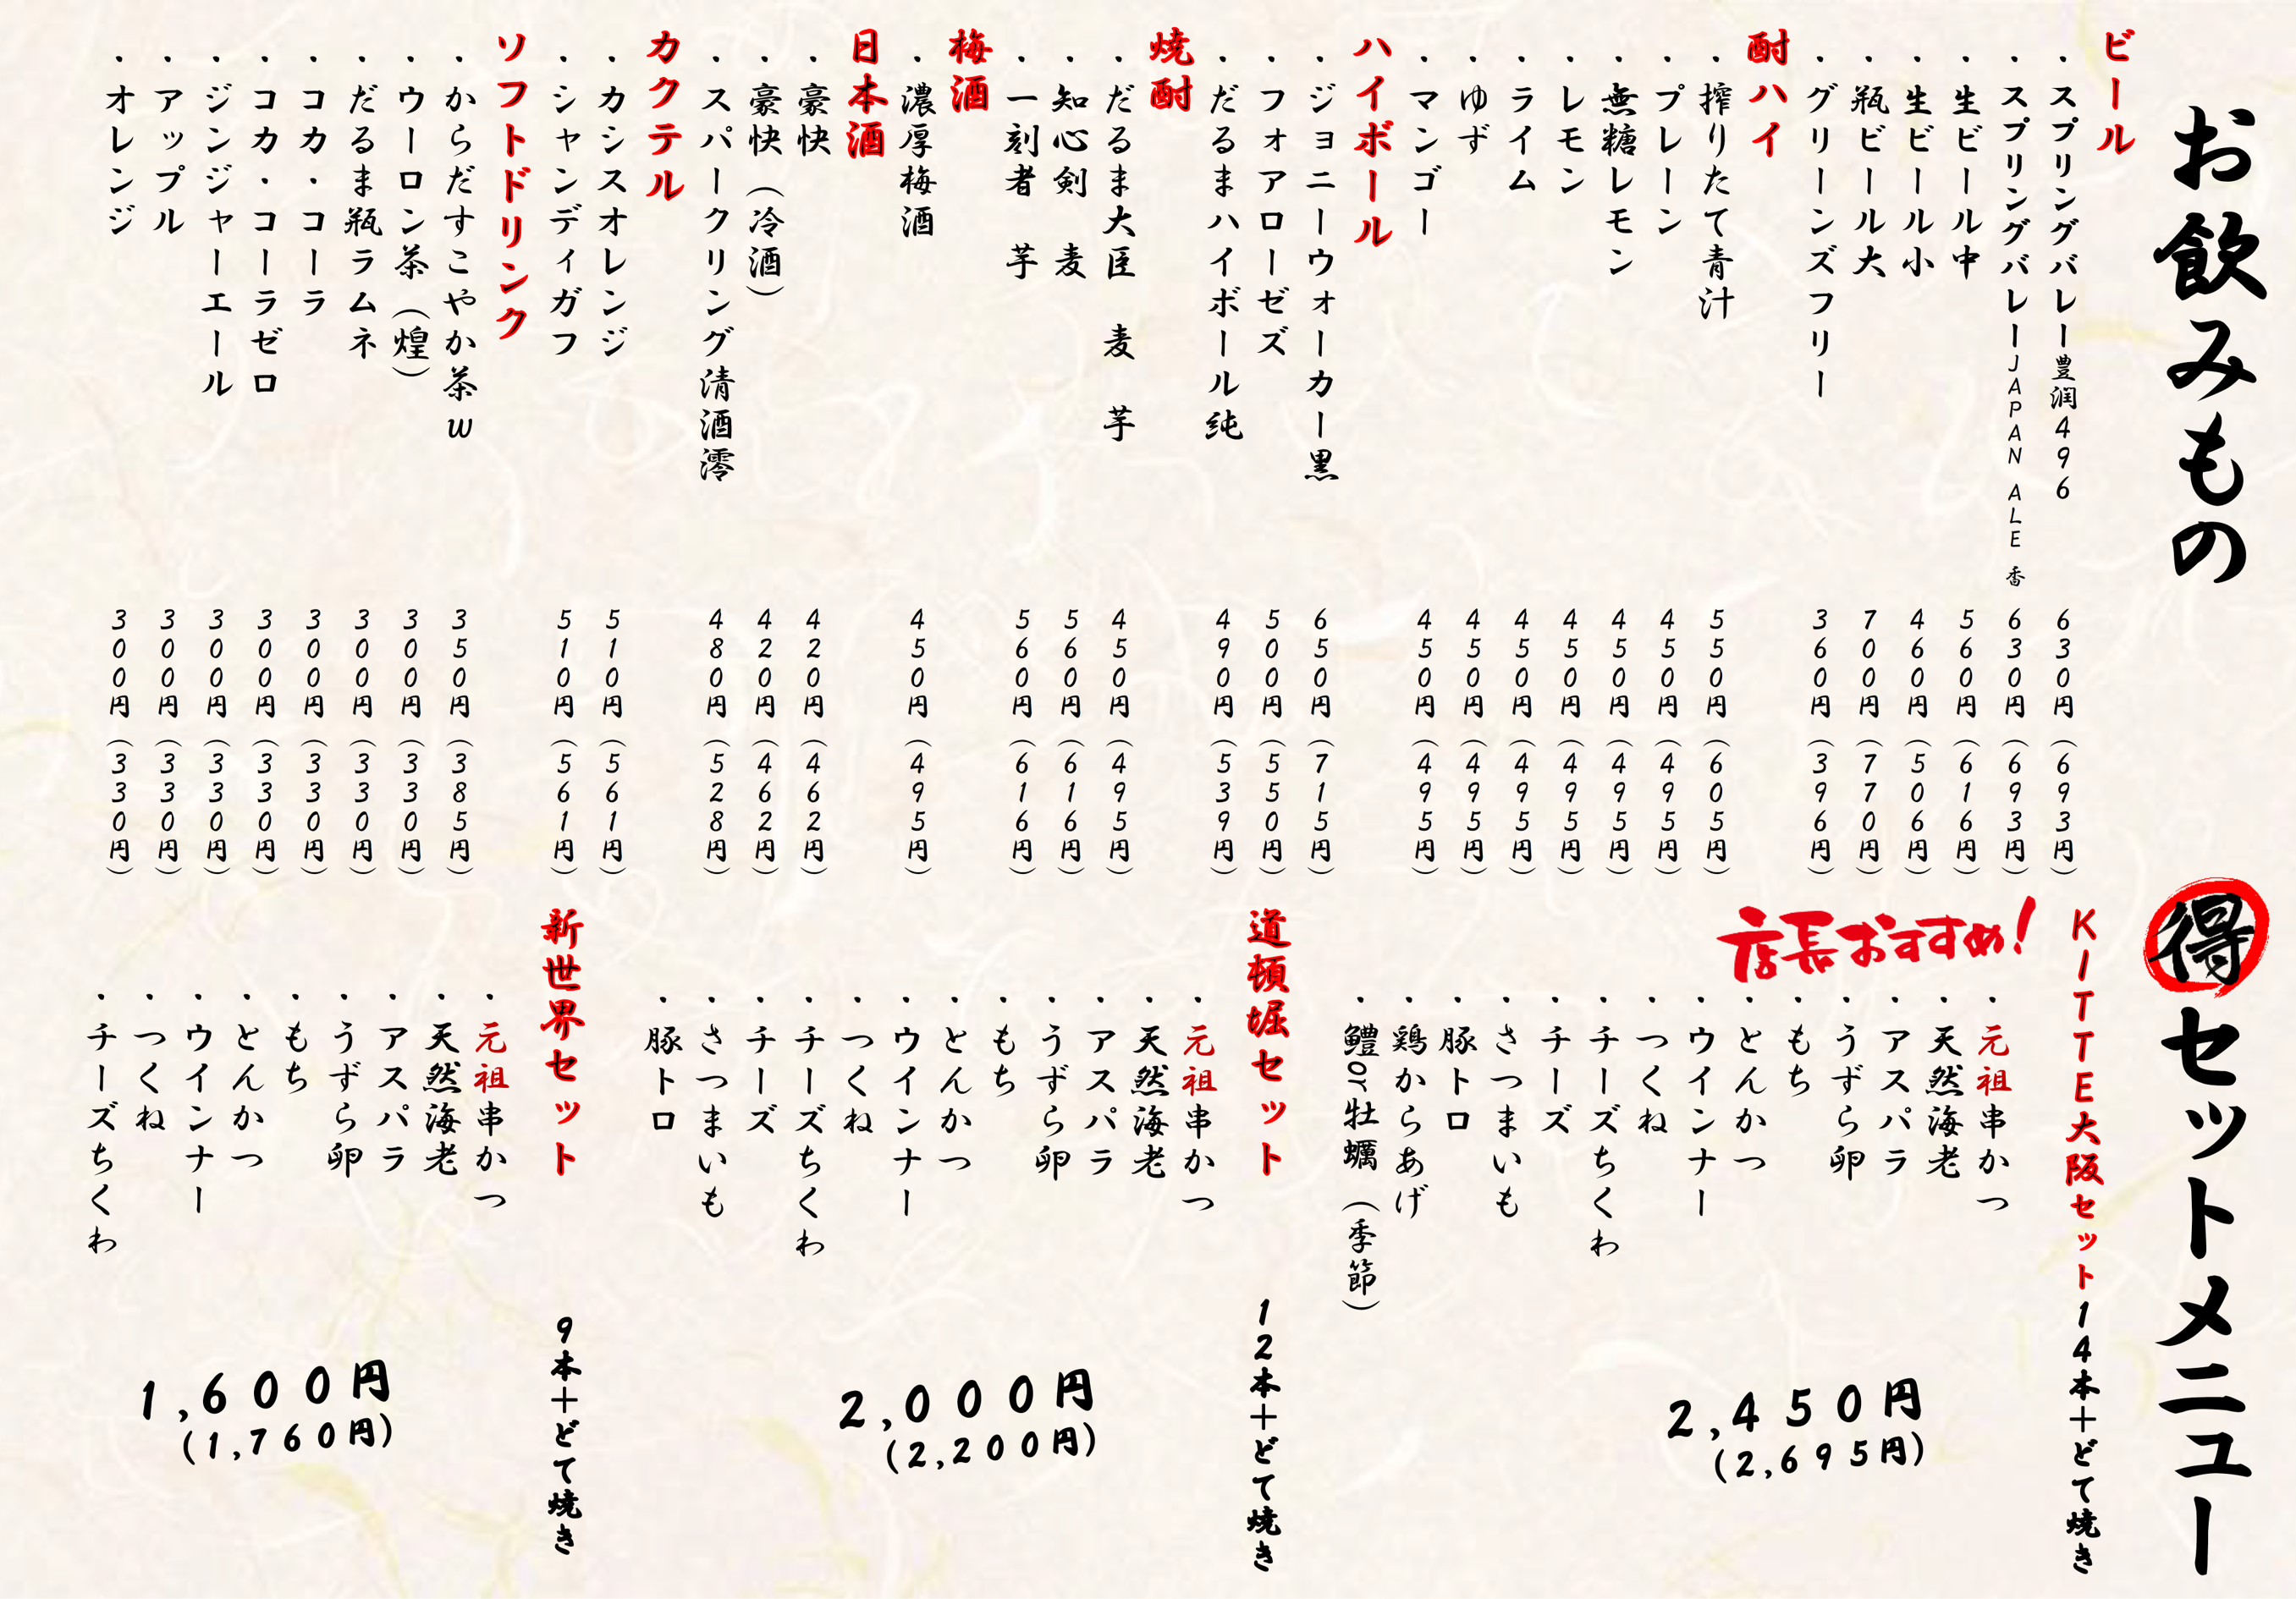 お飲みもの
ビール
・スプリングバレー豊潤496 630円（693円）
・スプリングバレーJAPAN ALE 香 630円（693円）
・生ビール中 560円（616円）
・生ビール小 460円（506円）
・瓶ビール大 700円（770円）
・グリーンズフリー 360円（396円）
酎ハイ
・搾りたて青汁 550円（605円）
・プレーン 450円（495円）
・無糖レモン 450円（495円）
・レモン 450円（495円）
・ライム 450円（495円）
・ゆず 450円（495円）
・マンゴー 450円（495円）
ハイボール
・ジョニーウォーカー黒 650円（715円）
・フォアローゼズ 500円（550円）
・だるまハイボール純 490円（539円）
焼酎
・だるま大臣 麦 芋 450円（495円）
・知心剣 麦 560円（616円）
・一刻者 芋 560円（616円）
梅酒
・濃厚梅酒 450円（495円）
日本酒
・豪快 420円（462円）
・豪快（冷酒） 420円（462円）
・スパークリング清酒澪 480円（528円）
カクテル
・カシスオレンジ 510円（561円）
・シャンディガフ 510円（561円）
ソフトドリンク
・からだすこやか茶W 350円（385円）
・ウーロン茶（煌） 300円（330円）
・だるま瓶ラムネ 300円（330円）
・コカ・コーラ 300円（330円）
・コカ・コーラゼロ 300円（330円）
・ジンジャーエール 300円（330円）
・アップル 300円（330円）
・オレンジ 300円（330円）
得セットメニュー
KITTE大阪セット 14本＋どて焼き
店長おすすめ！
・元祖串かつ
・天然海老
・アスパラ
・うずら卵
・もち
・とんかつ
・ウインナー
・つくね
・チーズちくわ
・チーズ
・さつまいも
・豚トロ
・鶏からあげ
・鱧or牡蠣（季節）
2,450円
(2,695円)
道頓堀セット 12本＋どて焼き
・元祖串かつ
・天然海老
・アスパラ
・うずら卵
・もち
・とんかつ
・ウインナー
・つくね
・チーズちくわ
・チーズ
・さつまいも
・豚トロ
2,000円
(2,200円)
新世界セット 9本＋どて焼き
・元祖串かつ
・天然海老
・アスパラ
・うずら卵
・もち
・とんかつ
・ウインナー
・つくね
・チーズちくわ
1,600円
(1,760円)